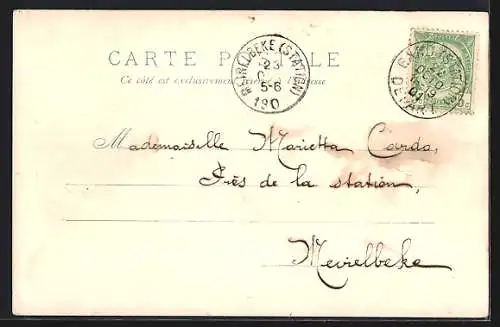 CARTE POSTALE
Ce côté est exclusivement réservé à l'adresse
MEIRELBEKE (STATION)
23
5-6
190
GAND (STATION)
DEPART
Mademoiselle Marietta Cardo,
Près de la station,
Meirelbeke